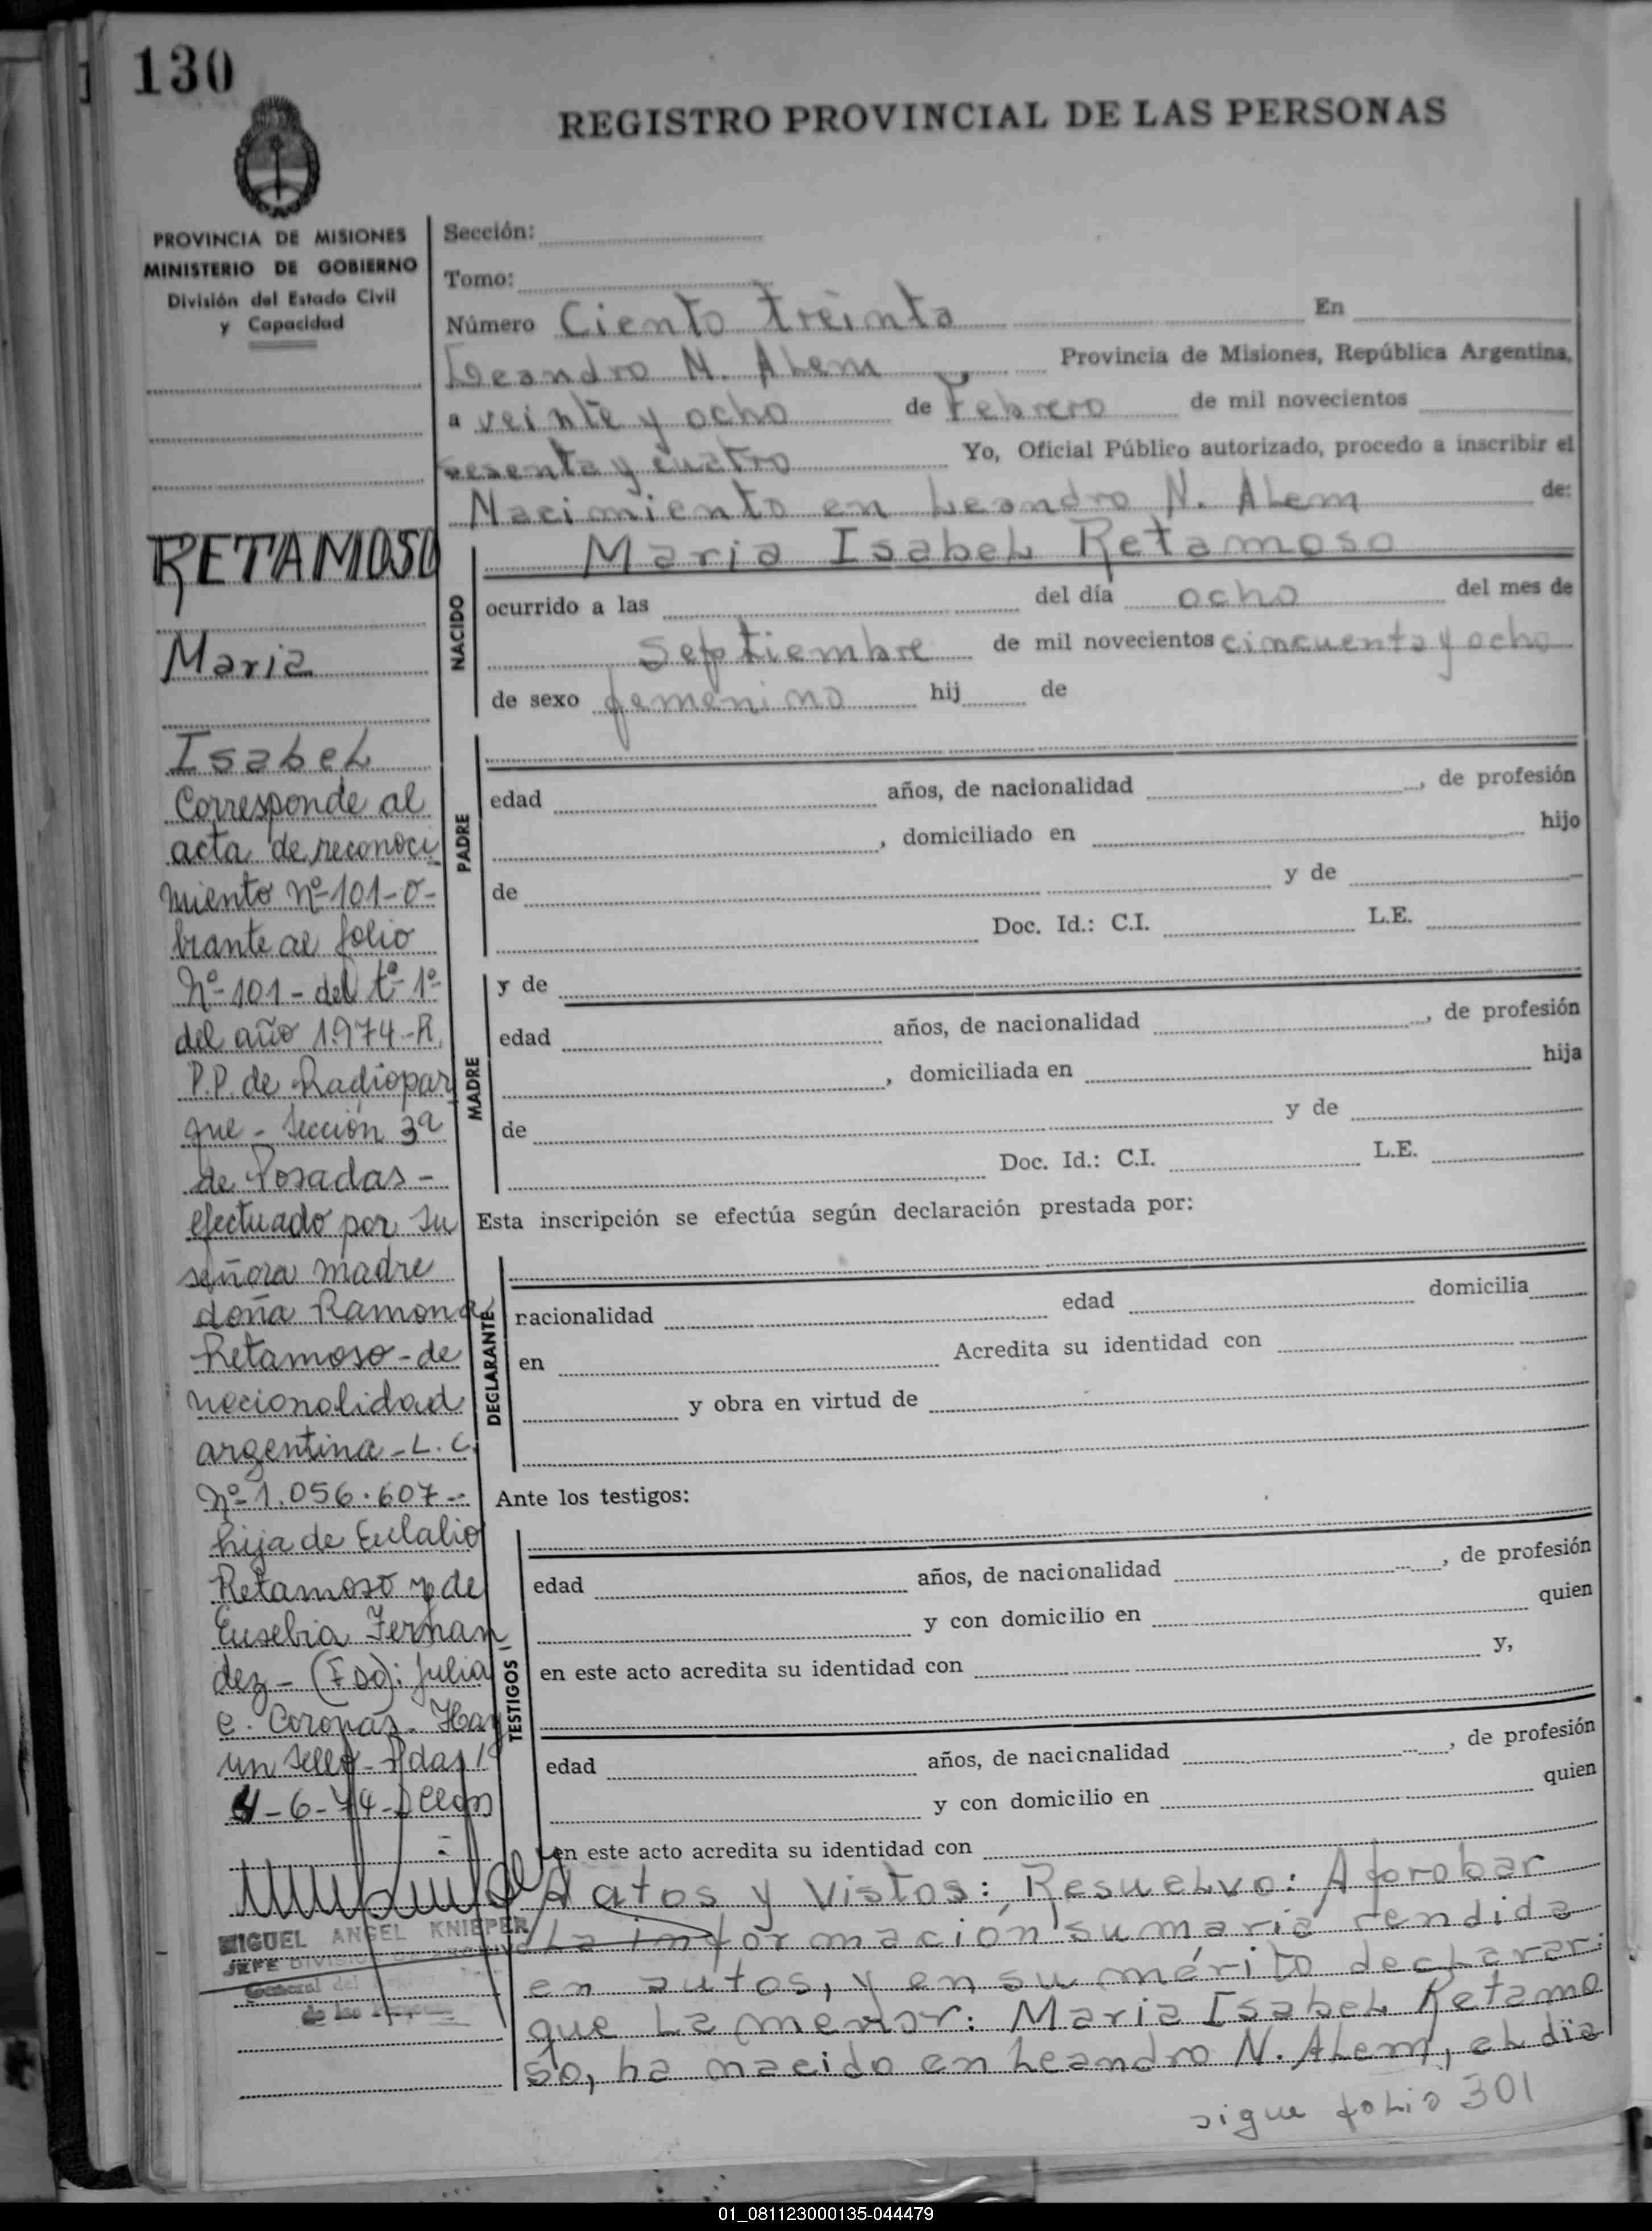 130
REGISTRO PROVINCIAL DE LAS PERSONAS
PROVINCIA DE MISIONES
MINISTERIO DE GOBIERNO
División del Estado Civil
y Capacidad
RETAMOSO
Maria
Isabel
Corresponde al
acta de reconoci
miento nº 101-o-
brante al folio
Nº 101 - del tº 1º
del año 1974 - R.
P.P. de Radiopar
que - Sección 3ª
de Posadas -
efectuado por su
señora madre
doña Ramona
Retamoso - de
nacionalidad
argentina - L. C.
Nº 1.056.607 -
hija de Eulalio
Retamoso y de
Eusebia Fernan
dez - (Fdo): Julia
e. Coronas. Hay
un sello - Pdas
4-6-74-
MIGUEL ANGEL KNIEPER
JEFE DIVISION ARCHIVO
General del
de las Personas
Sección:
Tomo:
Número Ciento treinta En
Leandro N. Alem, Provincia de Misiones, República Argentina,
a veinte y ocho de Febrero de mil novecientos
sesenta y cuatro Yo, Oficial Público autorizado, procedo a inscribir el
Nacimiento en Leandro N. Alem de:
NACIDO
Maria Isabel Retamoso
ocurrido a las del día ocho del mes de
septiembre de mil novecientos cincuenta y ocho
de sexo femenino hij de
PADRE
edad años, de nacionalidad , de profesión
, domiciliado en hijo
de y de
Doc. Id.: C.I. L.E.
MADRE
y de
edad años, de nacionalidad , de profesión
, domiciliada en hija
de y de
Doc. Id.: C.I. L.E.
Esta inscripción se efectúa según declaración prestada por:
DECLARANTE
nacionalidad edad domicilia
en Acredita su identidad con
y obra en virtud de
Ante los testigos:
TESTIGOS
edad años, de nacionalidad , de profesión
y con domicilio en quien
en este acto acredita su identidad con y,
edad años, de nacionalidad , de profesión
y con domicilio en quien
en este acto acredita su identidad con
Autos y Vistos: Resuelvo: Aprobar
la información sumaria rendida
en autos, y en su mérito declarar:
que la menor: Maria Isabel Retamo
so, ha nacido en Leandro N. Alem, el dia
sigue folio 301
01_081123000135-044479